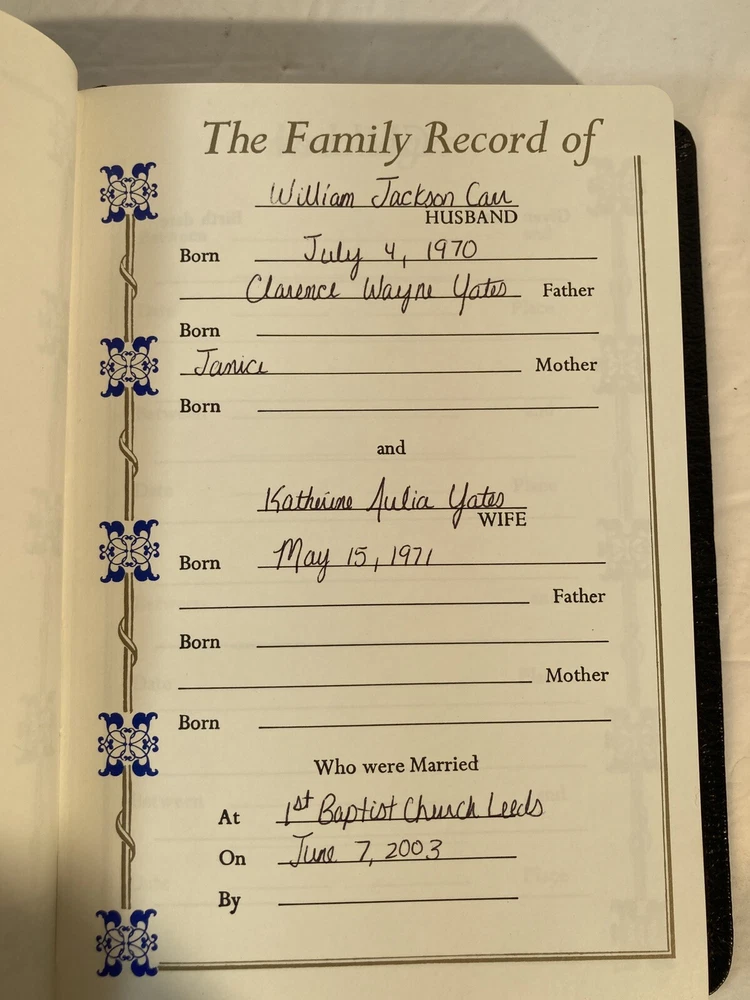 The Family Record of
William Jackson Carr
HUSBAND
Born July 4, 1970
Clarence Wayne Yates Father
Born
Janice Mother
Born
and
Katherine Julia Yates
WIFE
Born May 15, 1971
Father
Born
Mother
Born
Who were Married
At 1st Baptist Church Leeds
On June 7, 2003
By